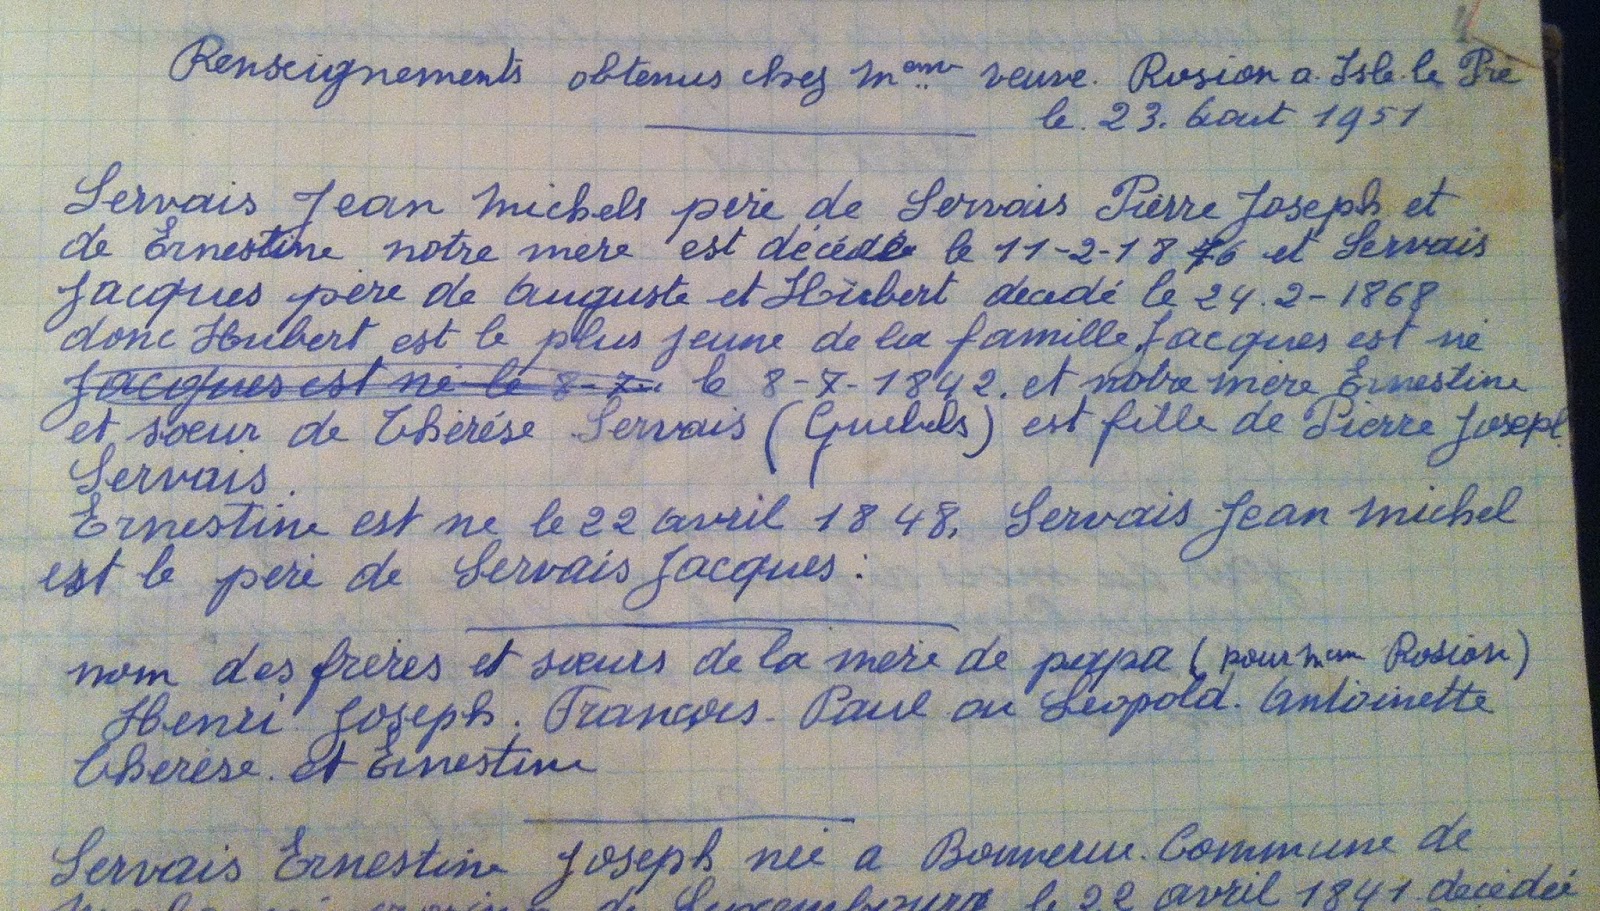 Renseignements obtenus chez Mame veuve. Rosion a. Isle. le Pré
le. 23. Aout 1951
Servais Jean Michels pere de Servais Pierre Joseph et
de Ernestine notre mere est décédée le 11-2-1876 et Servais
Jacques père de Auguste et Hubert decedé le 24.2-1868
donc Hubert est le plus jeune de la famille Jacques est né
Jacques est né le 8-7- le 8-7-1842. et notre mère Ernestine
et sœur de Thérése Servais (Guebels) est fille de Pierre Joseph
Servais.
Ernestine est ne le 22 avril 1848. Servais Jean Michel
est le pere de Servais Jacques:
nom des freres et sœurs de la mere de papa (pour mam Rosion)
Henri Joseph. François. Paul ou Léopold. Antoinette
Therèse. et Ernestine
Servais Ernestine Joseph née a Bonnerue. Commune de
de Luxembourg le 22 avril 1841. decédée